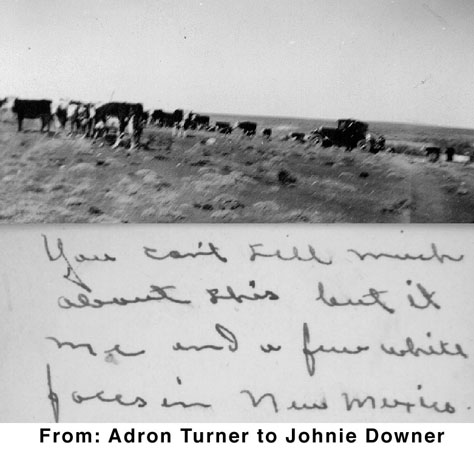 You can't tell much
about this but it
me and a few white
faces in New Mexico.
From: Adron Turner to Johnie Downer